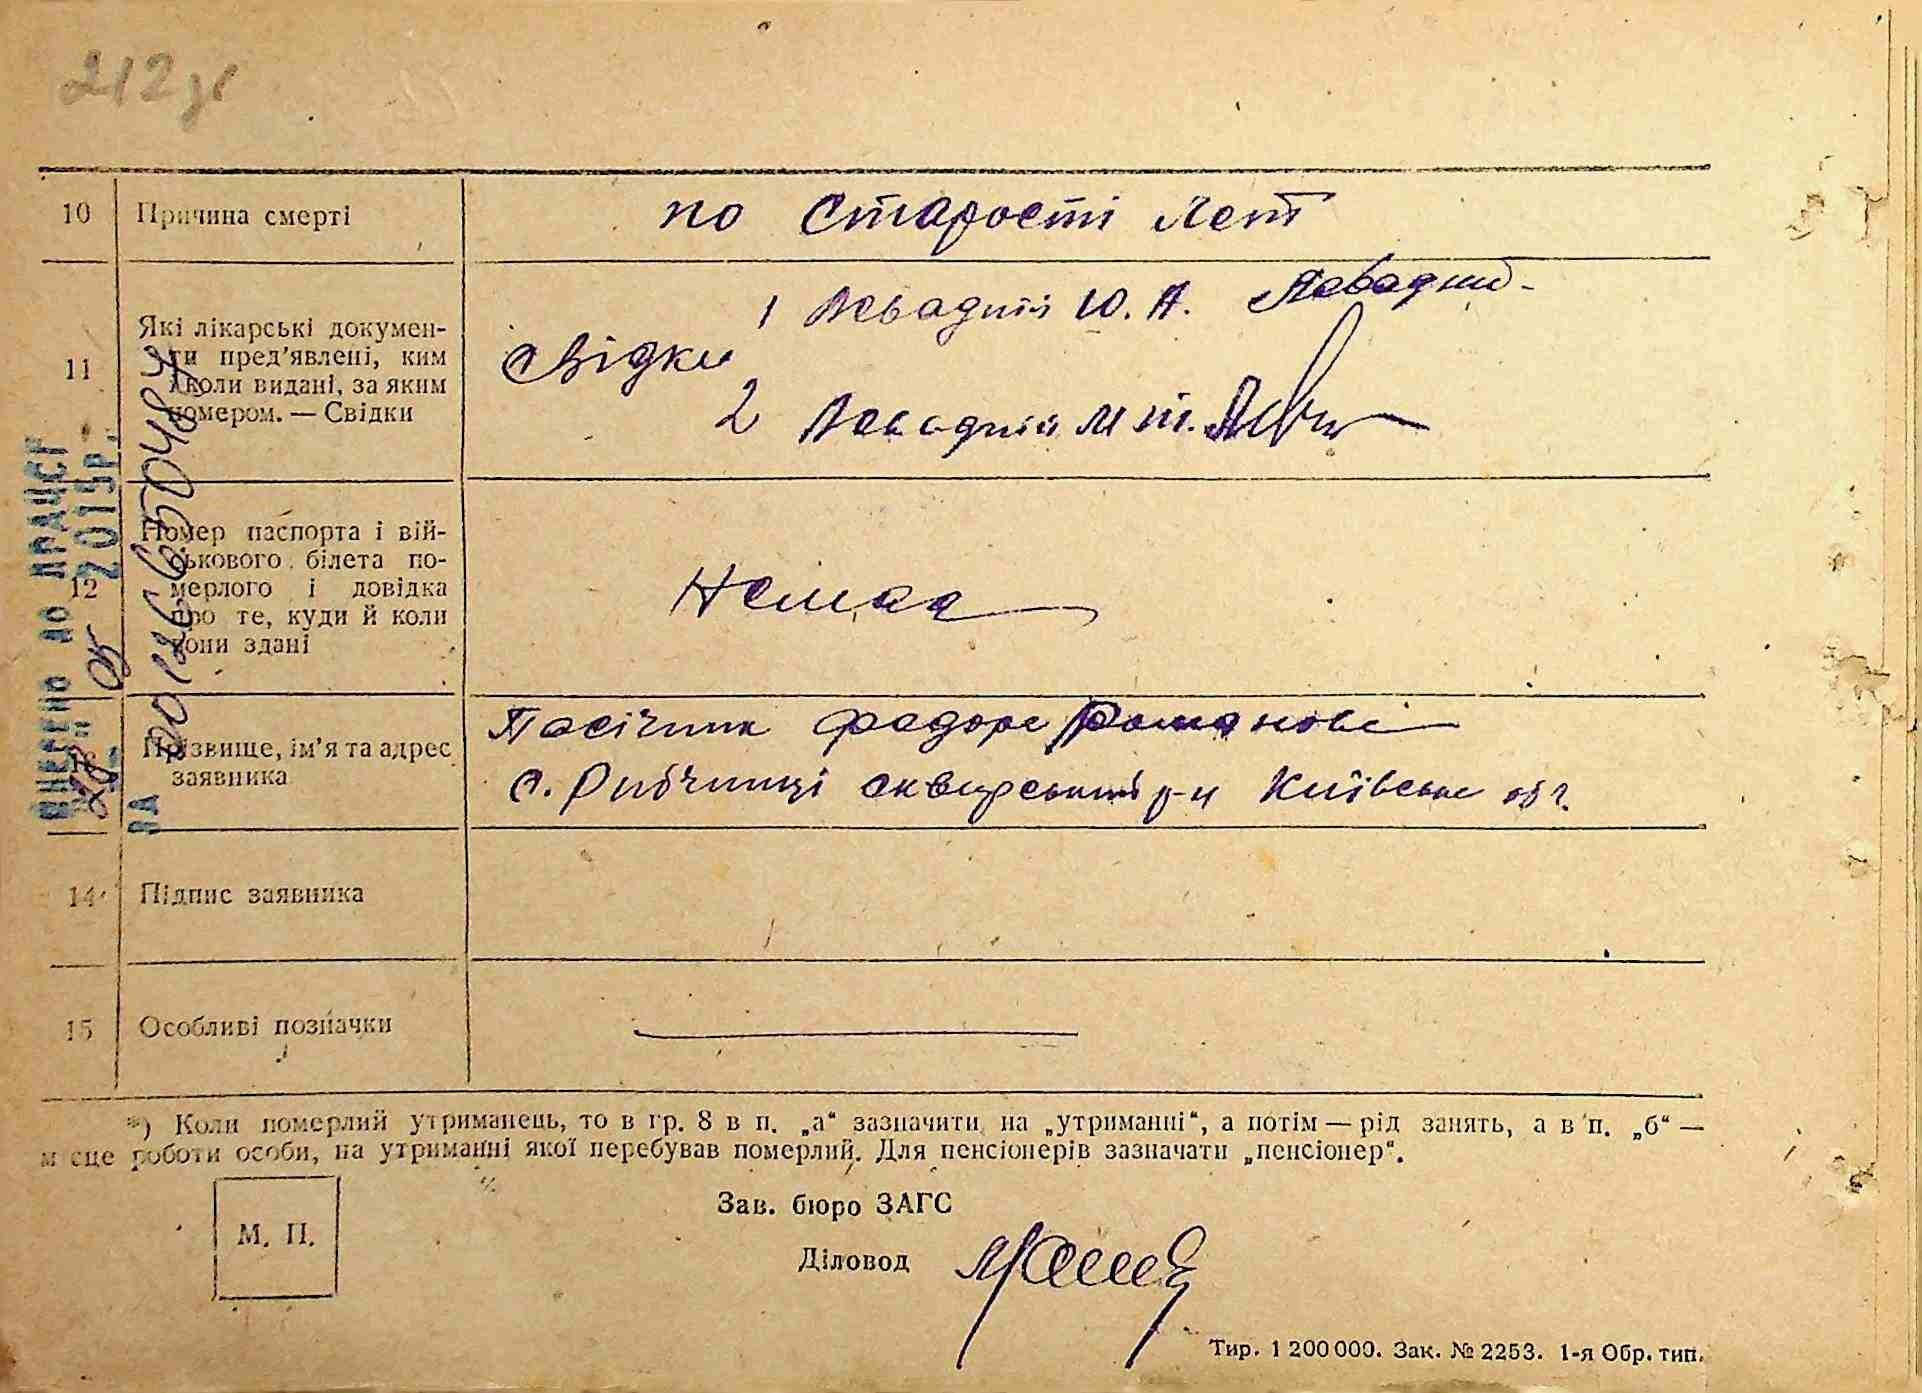 212
10 Причина смерті по Старості Лет
11 Які лікарські докумен-
ти пред’явлені, ким
і коли видані, за яким
номером. — Свідки
Свідки
1 Левадний Ю. А. Левадний
2 Левадній М
12 Номер паспорта і вій-
ськового білета по-
мерлого і довідка
про те, куди й коли
вони здані
Немає
13 Прізвище, ім’я та адрес
заявника
Пасічник Федора Романові
с. Рибчинці сквирський р-н Київське обл.
14 Підпис заявника
15 Особливі позначки
*) Коли померлий утриманець, то в гр. 8 в п. „а“ зазначити на „утриманні“, а потім — рід занять, а в п. „б“ —
місце роботи особи, на утриманні якої перебував померлий. Для пенсіонерів зазначати „пенсіонер“.
М. П.
Зав. бюро ЗАГС
Діловод
Тир. 1 200 000. Зак. № 2253. 1-я Обр. тип.
ВНЕСЕНО ДО ДРАЦСГ
28 05 2015р.
ЗА 00126650484